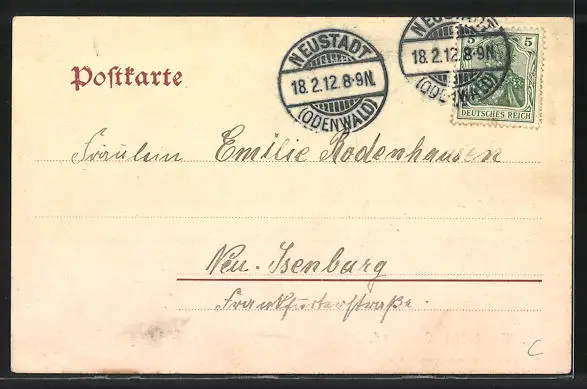 NEUSTADT
18.2.12.8-9N.
(ODENWALD)
NEUSTADT
18.2.12.8-9N.
(ODENWALD)
5 5
DEUTSCHES REICH
Postkarte
Fräulein Emilie Rodenhausen
Neu-Isenburg
Frankfurterstraße.
C